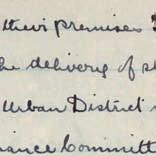 their premises
the delivery of
Urban District
Committ